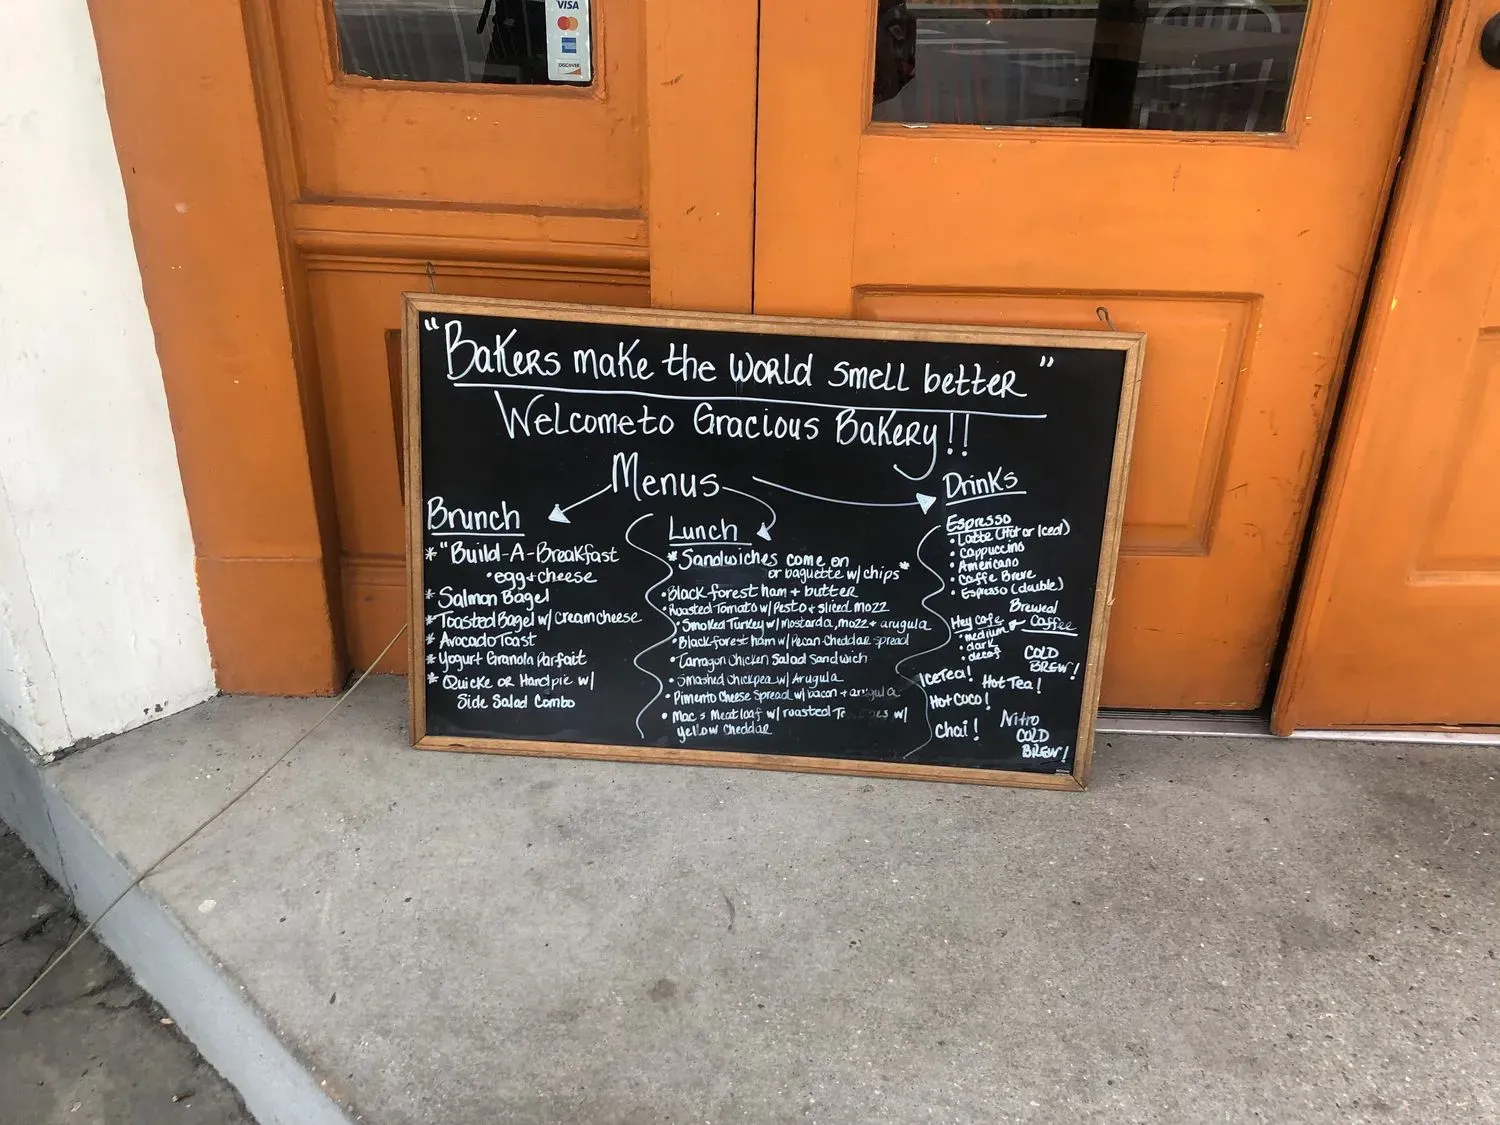 VISA
DISCOVER
"Bakers make the world smell better"
Welcome to Gracious Bakery!!
Menus
Brunch
* "Build-A-Breakfast
• egg + cheese
* Salmon Bagel
* Toasted Bagel w/ creamcheese
* Avocado Toast
* Yogurt Granola Parfait
* Quicke or Handpie w/
Side Salad Combo
Lunch
*Sandwiches come on
or baguette w/ chips*
• Black forest ham + butter
• Roasted Tomato w/ Pesto + sliced mozz
• Smoked Turkey w/ mostarda, mozz + arugula
• Black forest ham w/ Pecan-Cheddar spread
• Tarragon Chicken Salad Sandwich
• Smashed Chickpea w/ Arugula
• Pimento Cheese Spread w/ bacon + arugula
• Mac's Meatloaf w/ roasted w/
yellow cheddar
Drinks
Espresso
• Latte (Hot or Iced)
• Cappuccino
• Americano
• Caffe Breve
• Espresso (double)
Brewed
Coffee
Hey Cafe
• medium
• dark
• decaf
COLD
BREW!
Ice Tea!
Hot Tea!
Hot Coco!
Chai!
Nitro
COLD
BREW!